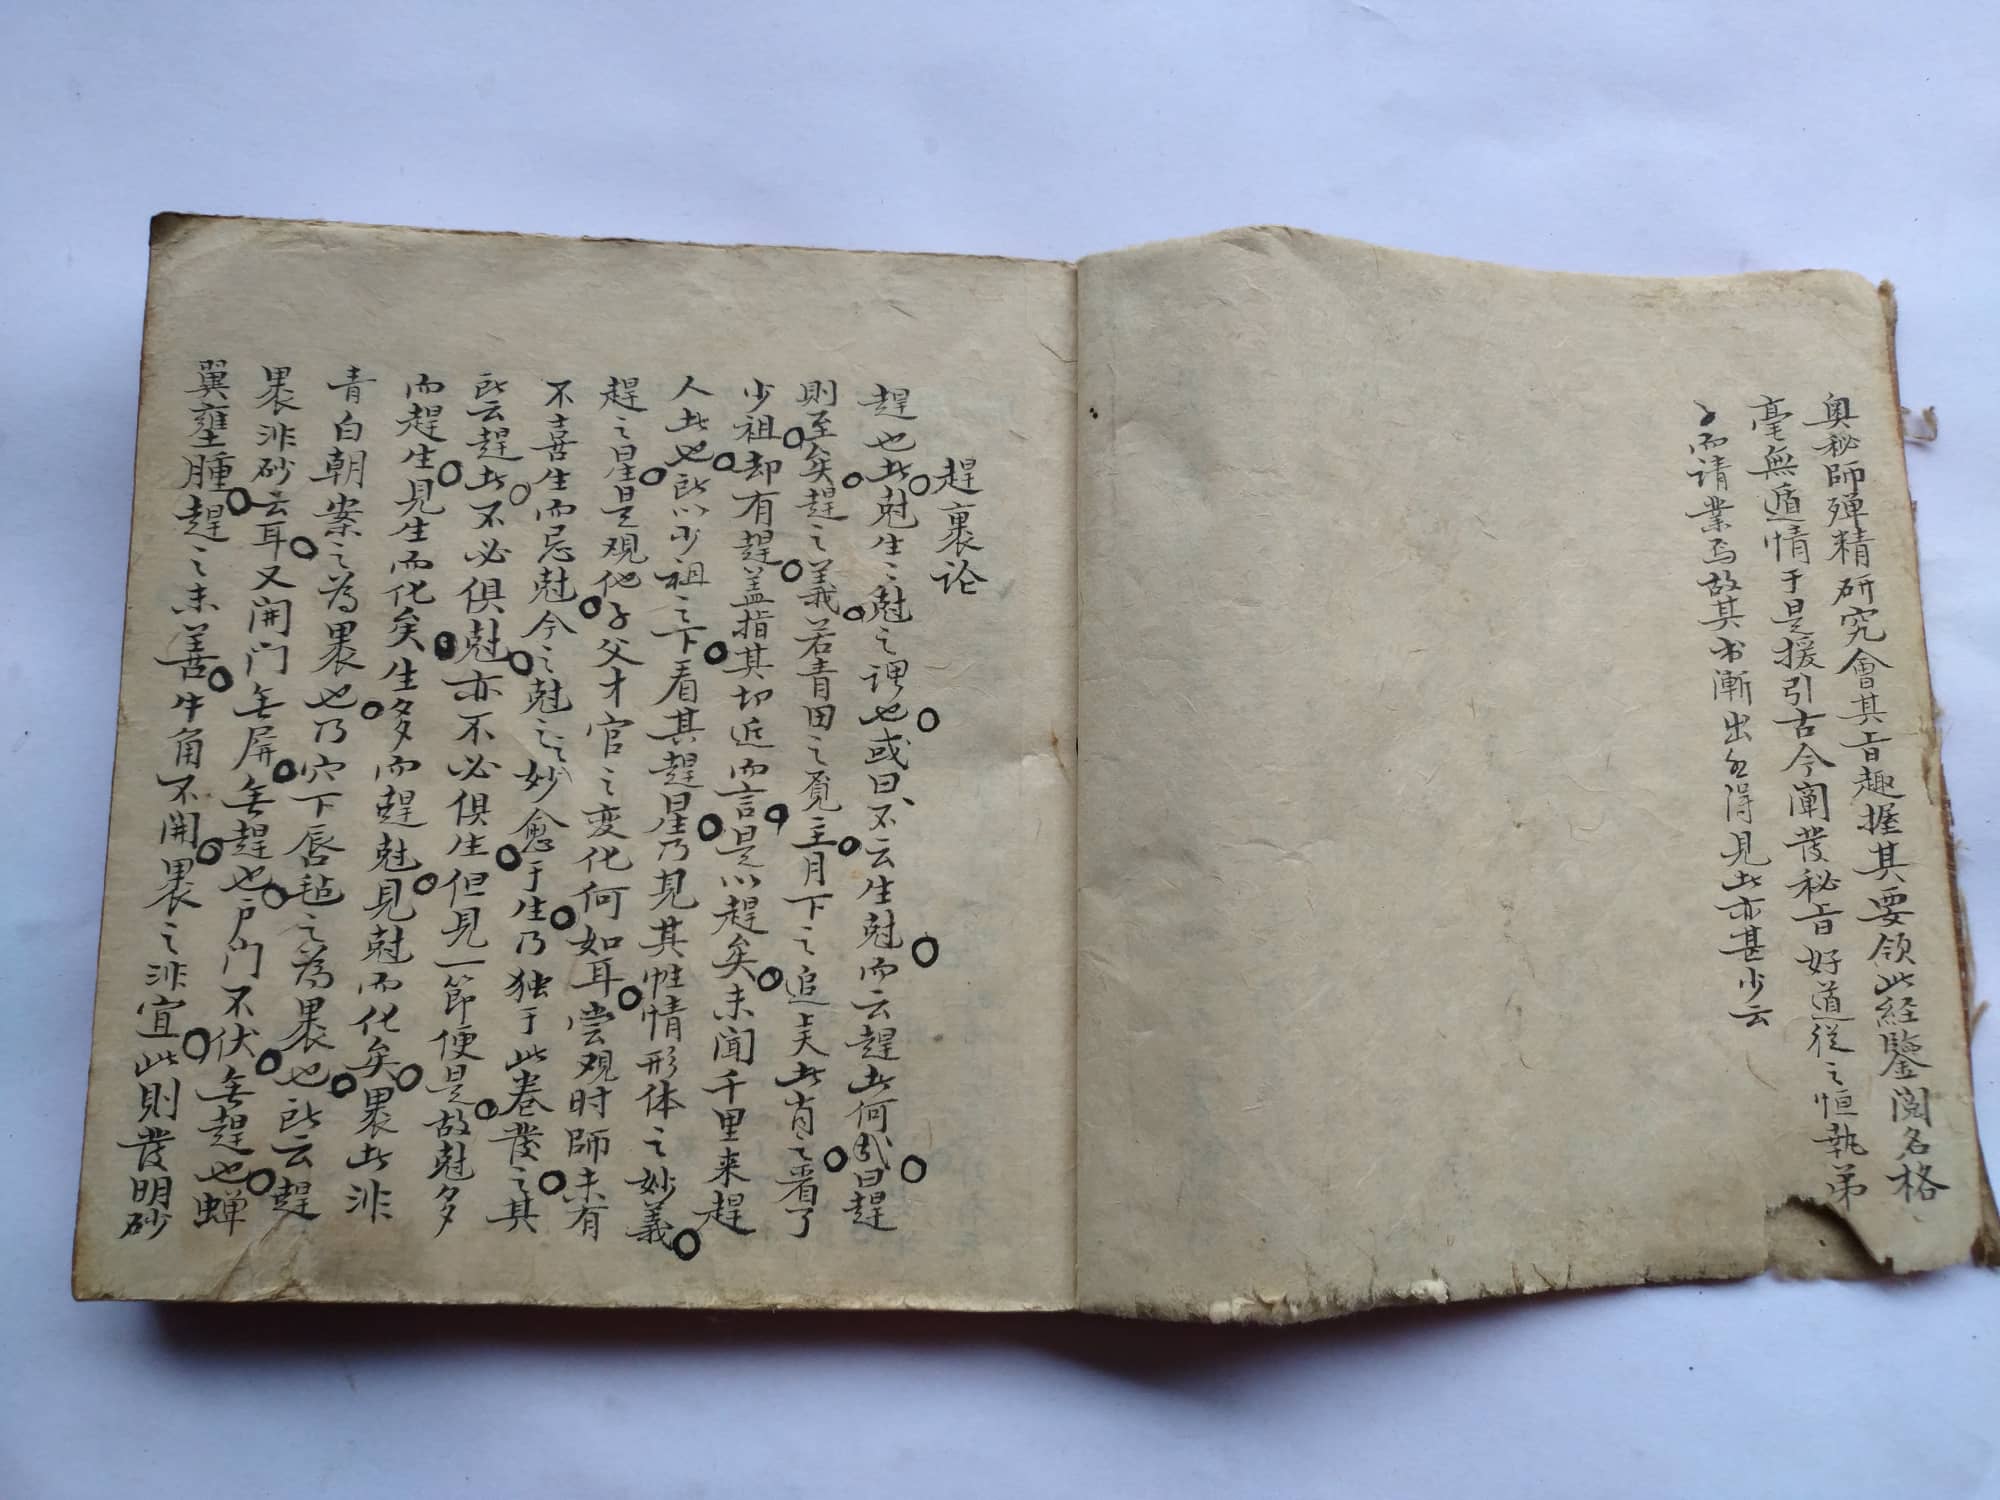 奥秘師殫精研究會其旨趣握其要領此経鑒阅名格
毫無遁情于是援引古今闡發秘旨好道從之恒執弟
子而请業焉故其书漸出得見此亦甚少云
趕裹论
趕也者尅生生尅之谓也或曰不云生尅而云趕者何哉曰趕
則至矣趕之義若青田之覓主月下之追夫者肖之看了
少祖却有趕盖指其切近而言是以趕矣未闻千里来趕
人者也所以少祖之下看其趕星乃見其性情形体之妙義
趕之星是观他子父才官之变化何如耳尝观时師未有
不喜生而忌尅今之尅之之妙愈于生乃独于此卷發之其
所云趕者不必俱尅亦不必俱生但見一節便是故尅多
而趕生見生而化矣生多而趕尅見尅而化矣裹者非
青白朝案之為裹也乃穴下唇毡之為裹也所云趕
裹非砂云耳又開门無屏無趕也户门不伏無趕也蝉
翼壅腫趕之未善牛角不開裹之非宜此則發明砂